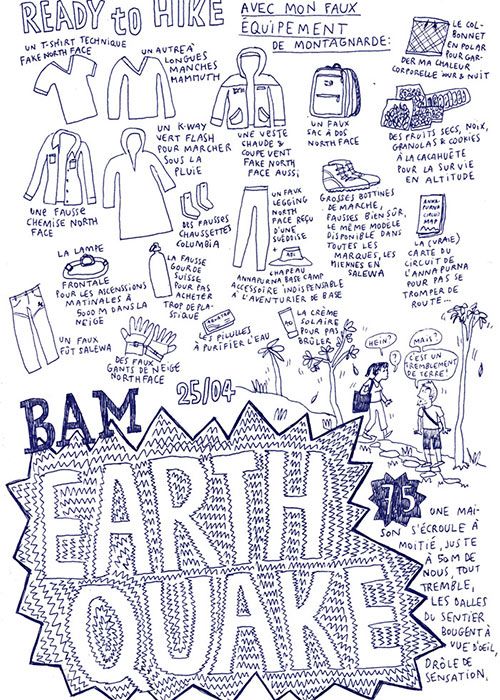 READY to HIKE
AVEC MON FAUX
ÉQUIPEMENT
DE MONTAGNARDE:
UN T-SHIRT TECHNIQUE
FAKE NORTH FACE
UN AUTRE À
LONGUES
MANCHES
MAMMUTH
UNE VESTE
CHAUDE &
COUPE VENT
FAKE NORTH
FACE AUSSI
UN FAUX
SAC À DOS
NORTH FACE
LE COL-
BONNET
EN POLAR
POUR GAR-
DER MA CHALEUR
CORPORELLE JOUR & NUIT
DES FRUITS SECS, NOIX,
GRANOLAS & COOKIES
À LA CACAHUÈTE
POUR LA SURVIE
EN ALTITUDE
UNE FAUSSE
CHEMISE NORTH
FACE
UN K-WAY
VERT FLASH
POUR MARCHER
SOUS LA
PLUIE
DES FAUSSES
CHAUSSETTES
COLUMBIA
UN FAUX
LEGGING
NORTH
FACE REÇU
D'UNE
SUÉDOISE
GROSSES BOTTINES
DE MARCHE,
FAUSSES BIEN SÛR,
LE MÊME MODÈLE
DISPONIBLE DANS
TOUTES LES
MARQUES, LES
MIENNES EN
SALEWA
ANNA
PURNA
CIRCUIT
MAP
LA (VRAIE)
CARTE DU
CIRCUIT DE
L'ANNAPURNA
POUR PAS SE
TROMPER DE
ROUTE...
LA LAMPE
FRONTALE
POUR LES ASCENSIONS
MATINALES À
5000 M DANS LA
NEIGE
LA FAUSSE
GOURDE
SUISSE
POUR PAS
ACHETER
TROP DE PLA-
STIQUE
CHAPEAU
ANNAPURNA BASE CAMP
ACCESSOIRE INDISPENSABLE
À L'AVENTURIER DE BASE
UN FAUX
FÛT SALEWA
DES FAUX
GANTS DE NEIGE
NORTH FACE
LES PILULES
À PURIFIER L'EAU
LA CRÈME
SOLAIRE
POUR PAS
BRÛLER
HEIN?
?
MAIS?
C'EST UN
TREMBLEMENT
DE TERRE!
25/04
BAM
EARTH
QUAKE
7,5
UNE MAI-
SON S'ÉCROULE À
MOITIÉ, JUSTE
À 50M DE
NOUS, TOUT
TREMBLE,
LES DALLES
DU SENTIER
BOUGENT À
VUE D'OEIL,
DRÔLE DE
SENSATION,